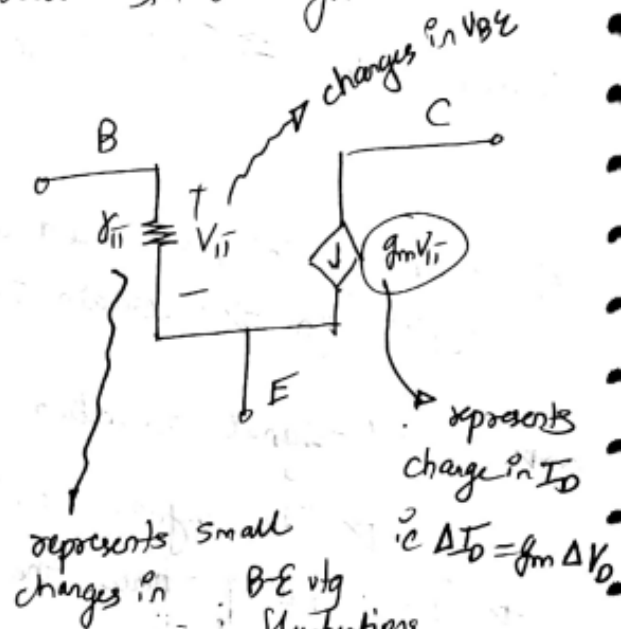 changes in VBE
B
C
+
rπ
Vπ
gmVπ
−
E
represents
change in ID
ie ΔID = gm ΔVD
represents small
changes in B-E vtg